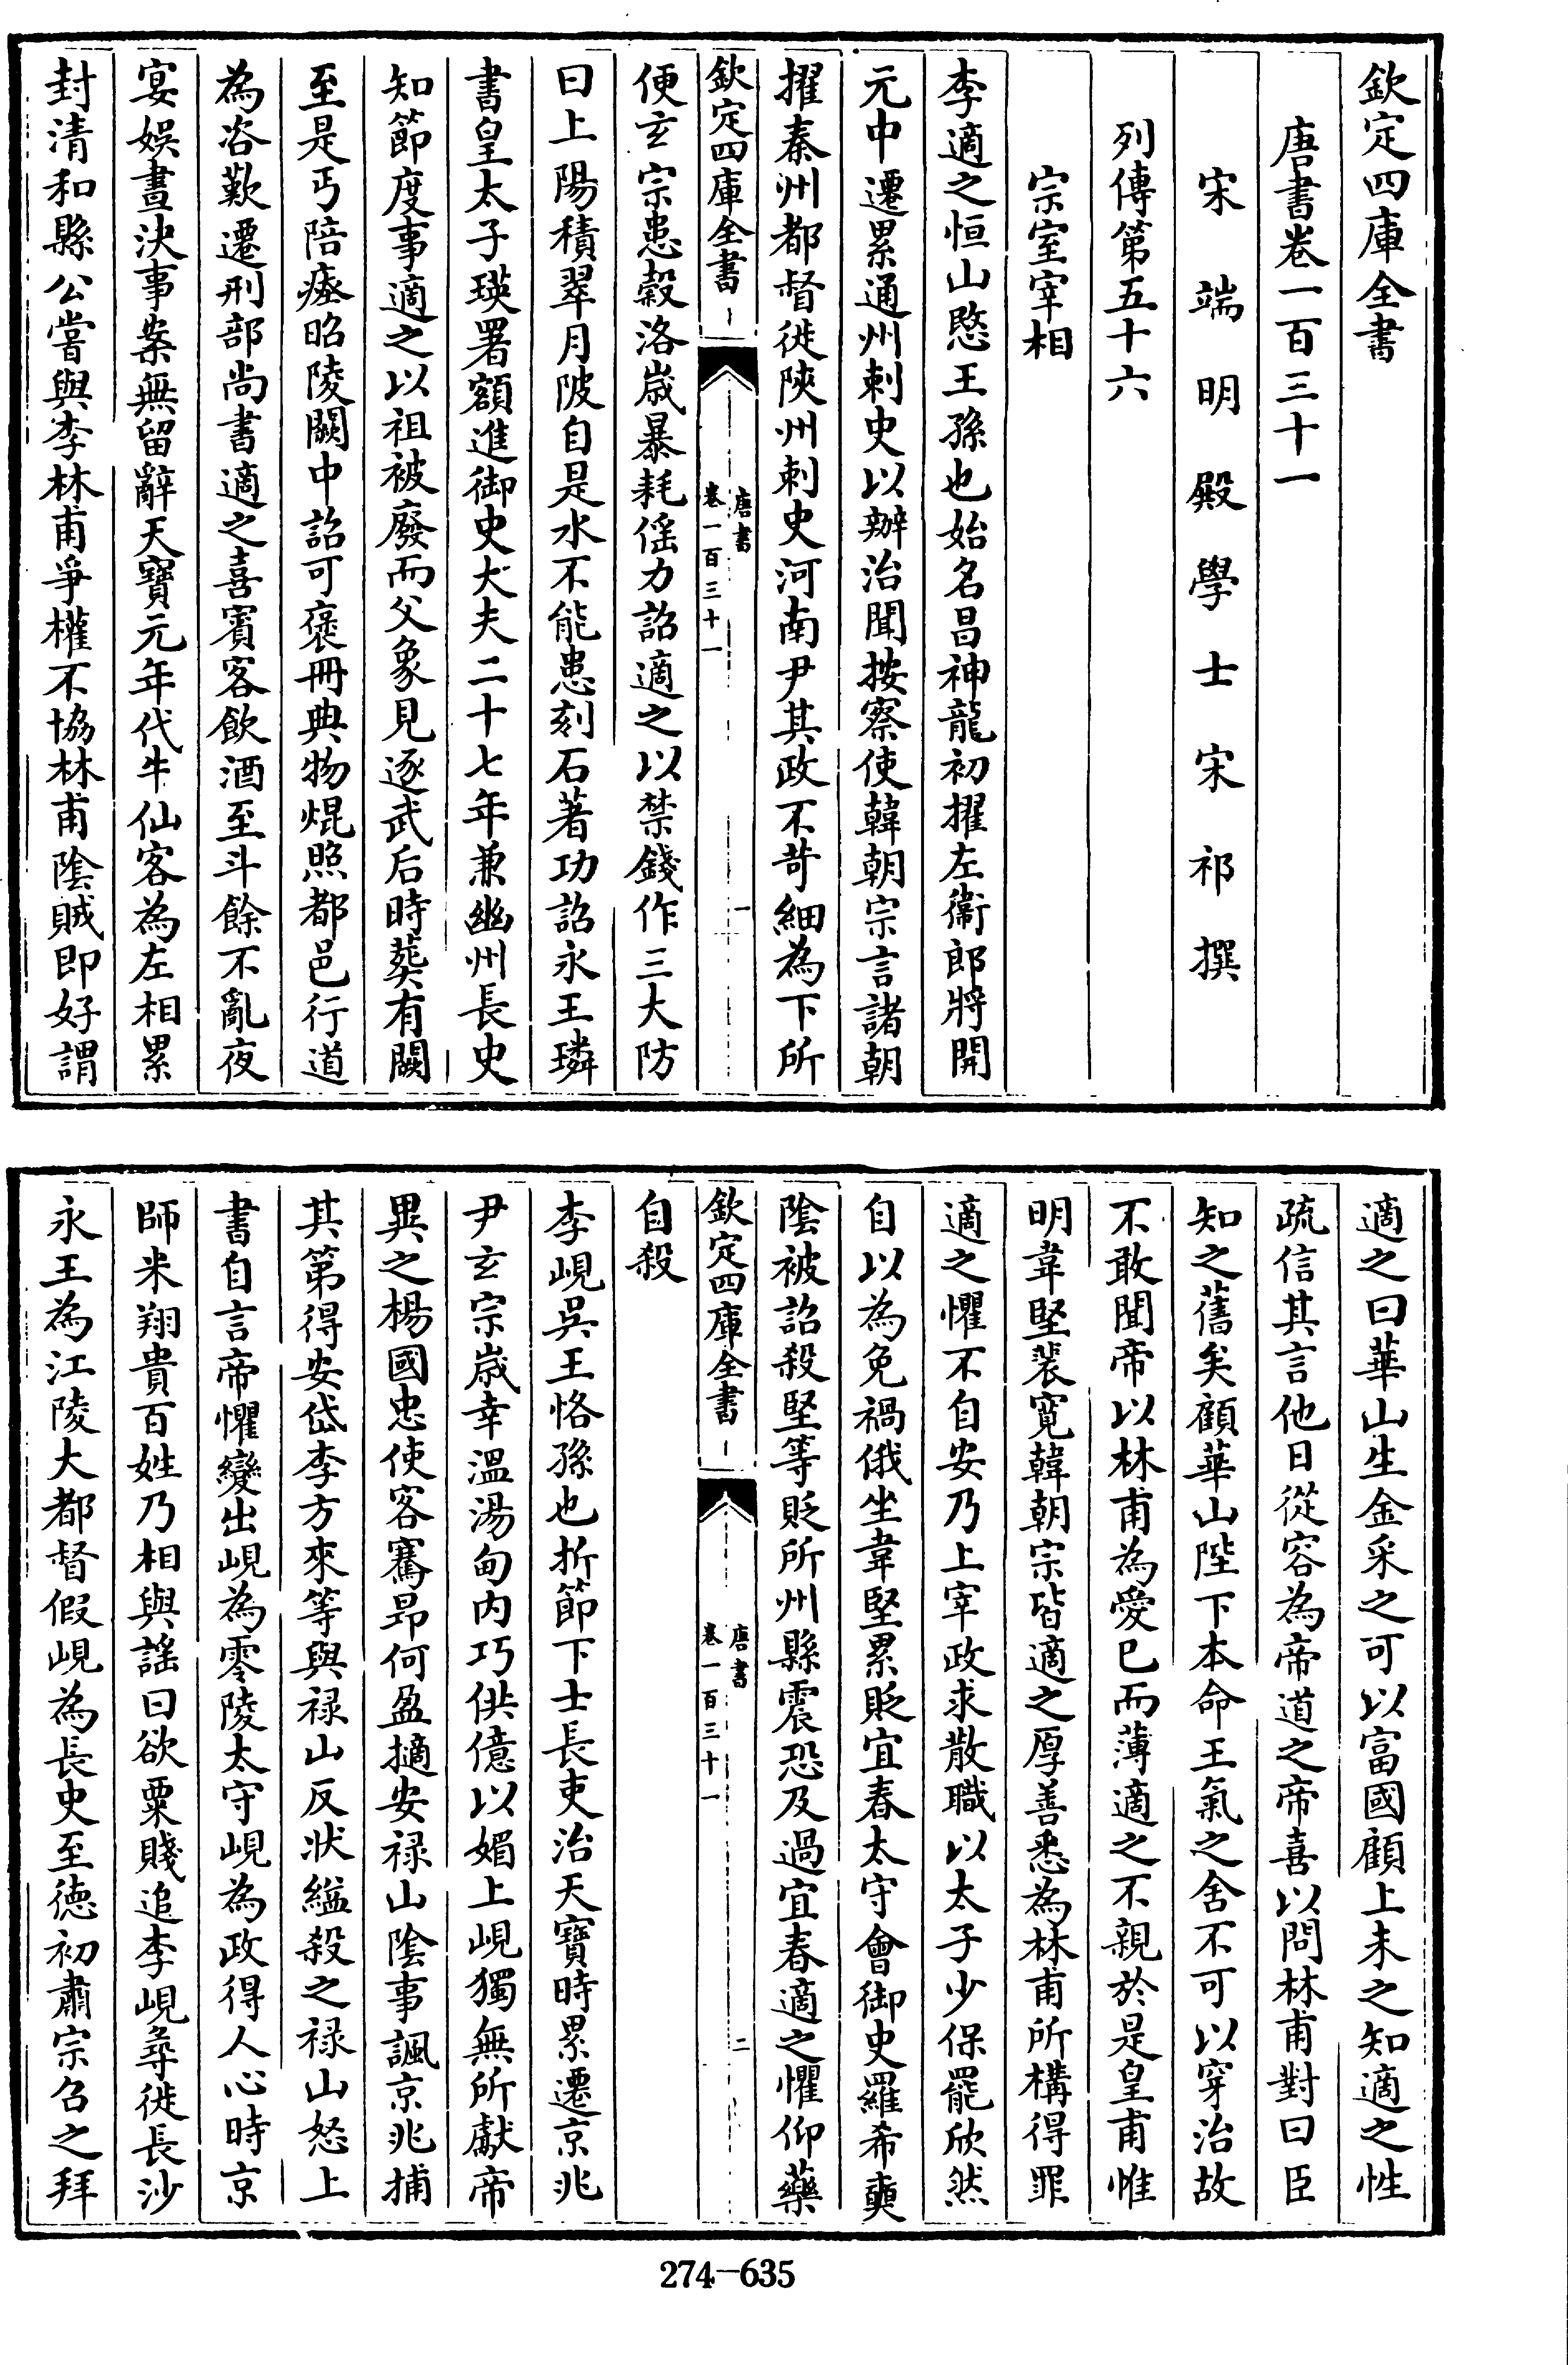 欽定四庫全書
唐書卷一百三十一
宋端明殿學士宋祁撰
列傳第五十六
宗室宰相
李適之恒山愍王孫也始名昌神龍初擢左衞郎將開
元中遷累通州刺史以辦治聞按察使韓朝宗言諸朝
擢秦州都督徙陜州刺史河南尹其政不苛細為下所
欽定四庫全書
唐書
卷一百三十一
一
便玄宗患穀洛歲暴耗徭力詔適之以禁錢作三大防
曰上陽積翠月陂自是水不能患刻石著功詔永王璘
書皇太子瑛署額進御史大夫二十七年兼幽州長史
知節度事適之以祖被廢而父象見逐武后時葬有闕
至是丐陪瘞昭陵闕中詔可褒冊典物焜照都邑行道
為咨歎遷刑部尚書適之喜賓客飲酒至斗餘不亂夜
宴娛晝決事案無留辭天寶元年代牛仙客為左相累
封清和縣公嘗與李林甫爭權不協林甫陰賊即好謂
適之曰華山生金采之可以富國顧上未之知適之性
疏信其言他日從容為帝道之帝喜以問林甫對曰臣
知之舊矣顧華山陛下本命王氣之舍不可以穿治故
不敢聞帝以林甫為愛己而薄適之不親於是皇甫惟
明韋堅裴寛韓朝宗皆適之厚善悉為林甫所構得罪
適之懼不自安乃上宰政求散職以太子少保罷欣然
自以為免禍俄坐韋堅累貶宜春太守會御史羅希奭
陰被詔殺堅等貶所州縣震恐及過宜春適之懼仰藥
欽定四庫全書
唐書
卷一百三十一
二
自殺
李峴吳王恪孫也折節下士長吏治天寶時累遷京兆
尹玄宗歲幸溫湯甸内巧供億以媚上峴獨無所獻帝
異之楊國忠使客騫昂何盈擿安禄山陰事諷京兆捕
其第得安岱李方來等與禄山反狀縊殺之禄山怒上
書自言帝懼變出峴為零陵太守峴為政得人心時京
師米翔貴百姓乃相與謠曰欲粟賤追李峴尋徙長沙
永王為江陵大都督假峴為長史至德初肅宗召之拜
274-635